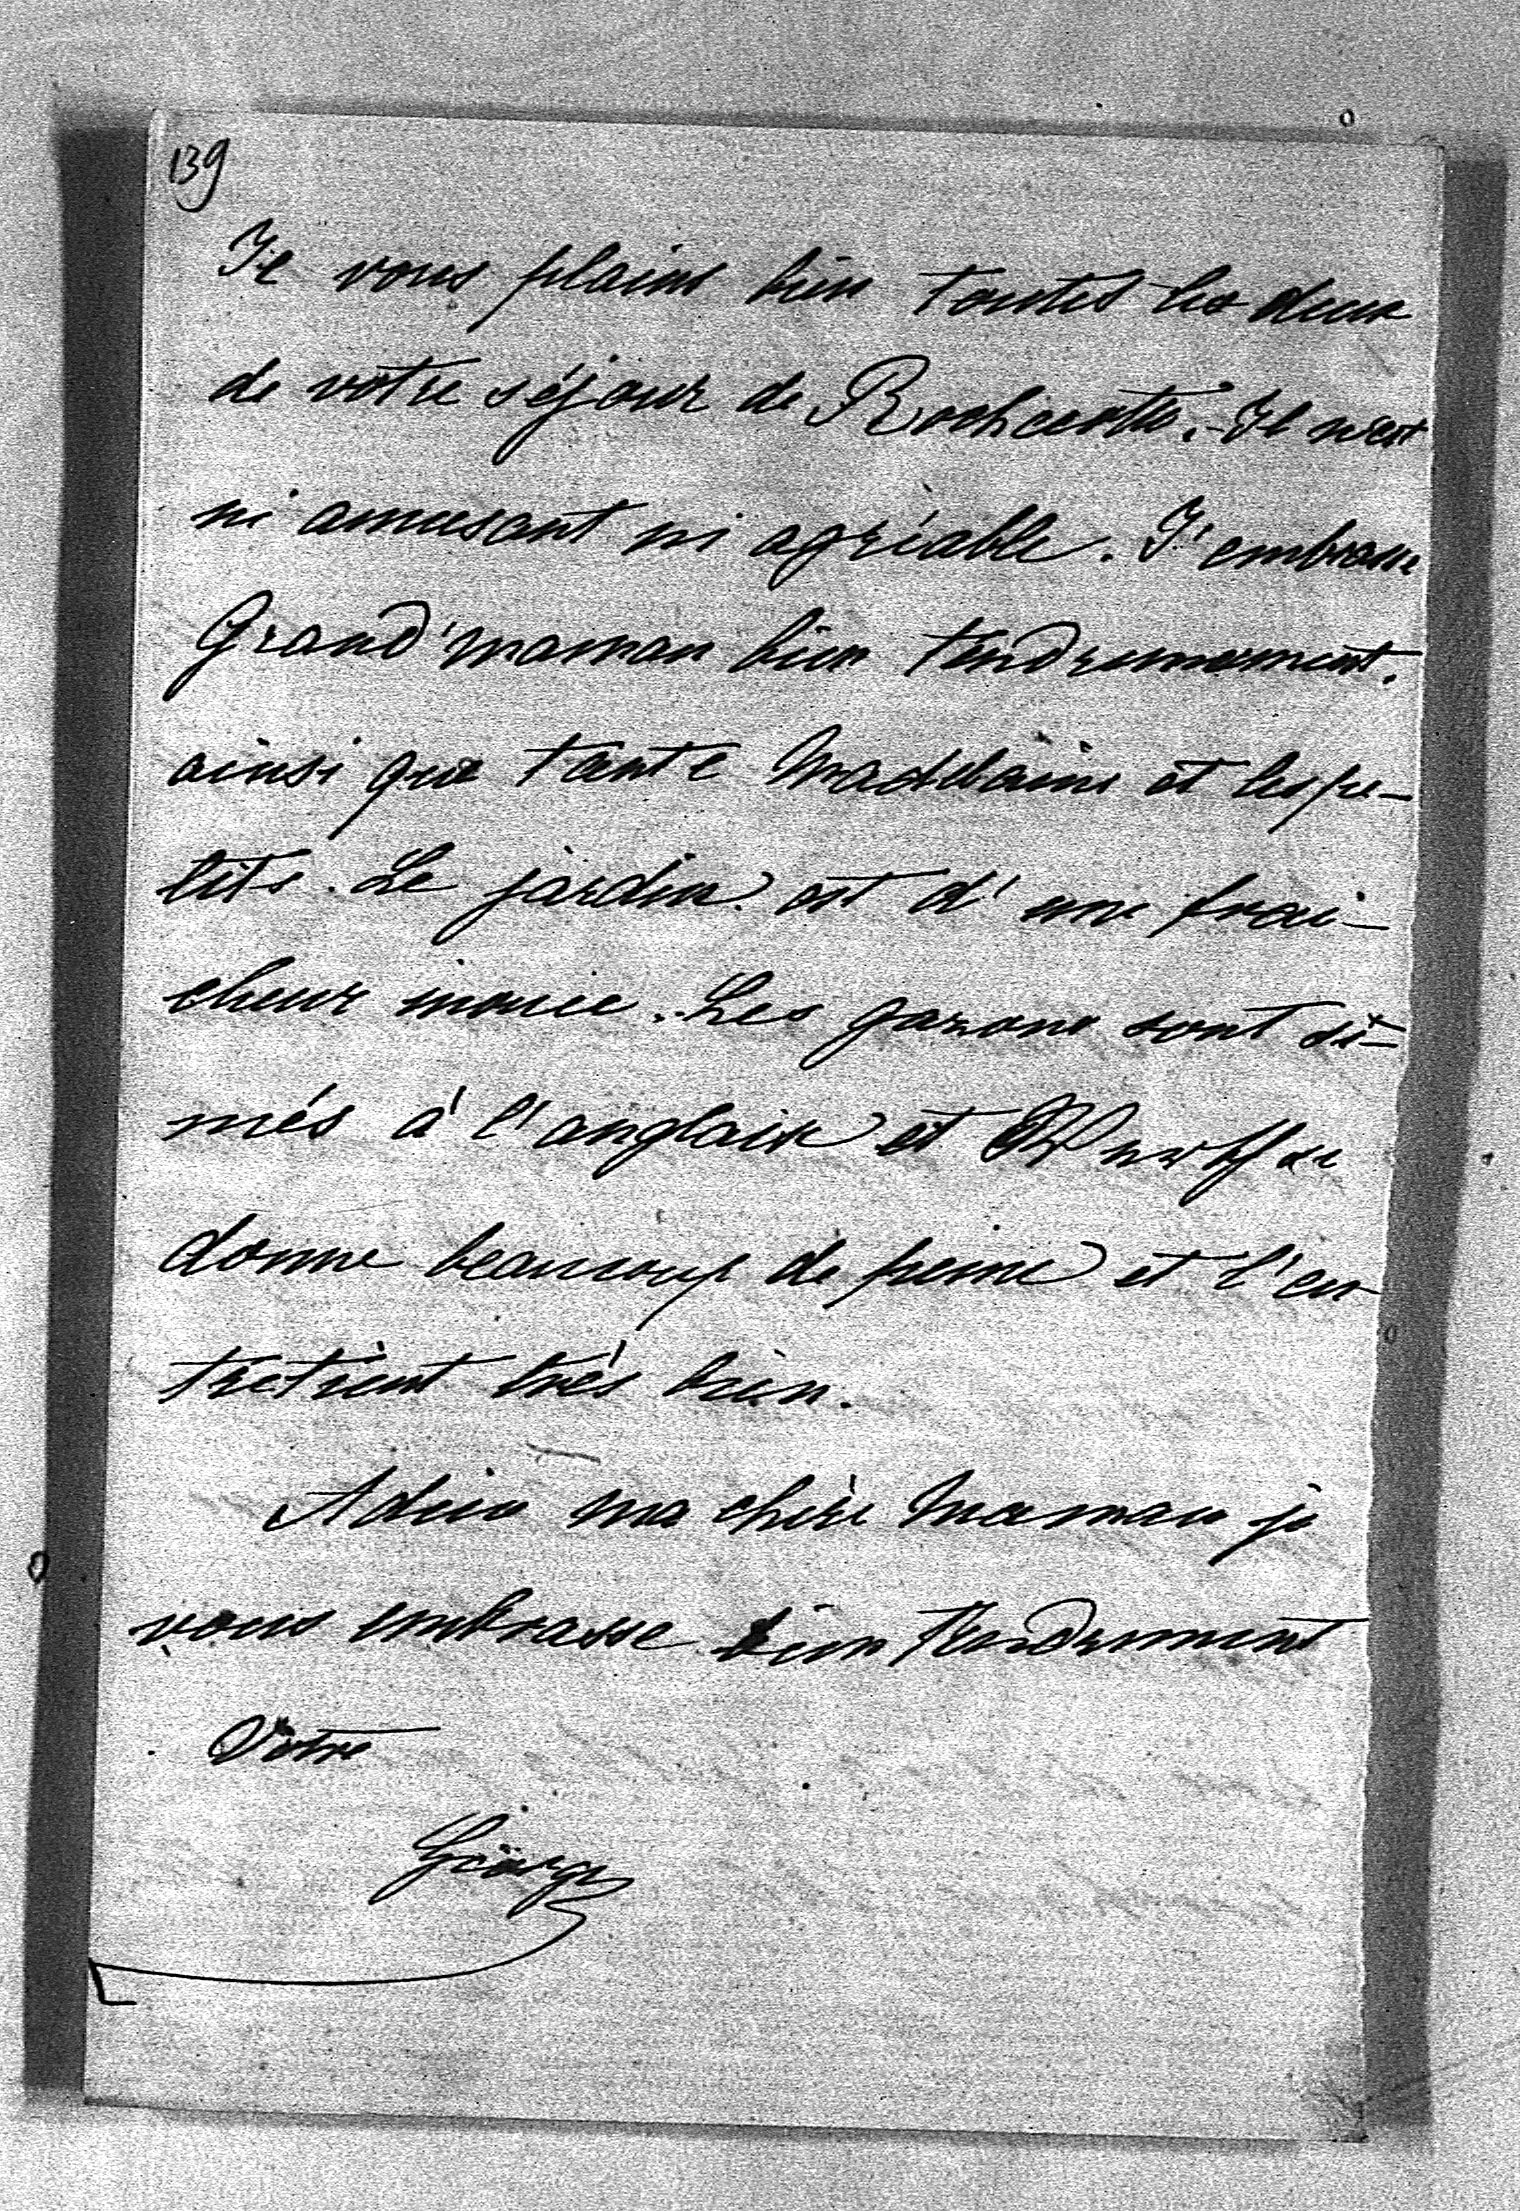 139
Je vous plains bien toutes les deux
de votre séjour de Rochecotte. Il n'est
ni amusant ni agréable. J'embrasse
Grand'maman bien tendrement.
ainsi que tante Madelaine et les pe-
tits. Le jardin est d'une frai-
cheur inouie.. Les gazons sont
més à l'anglaise et se
donne beaucoup de peine et l'en
tretient très bien.
Adieu ma chère Maman je
vous embrasse bien tendrement
Votre
Georges